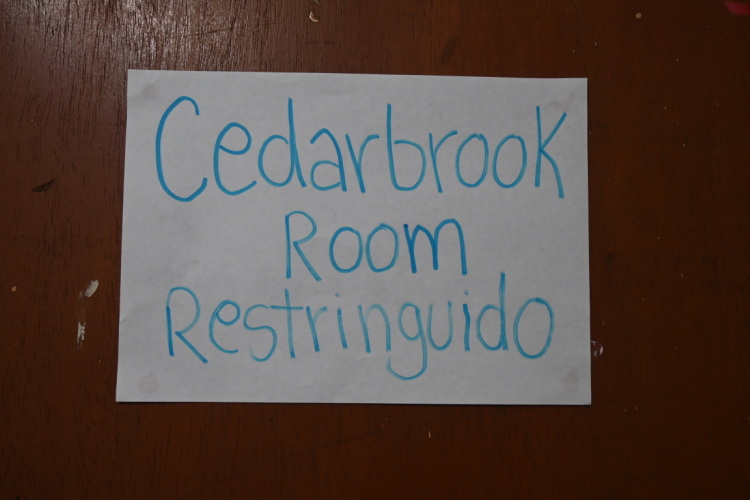 Cedarbrook
Room
Restringuido